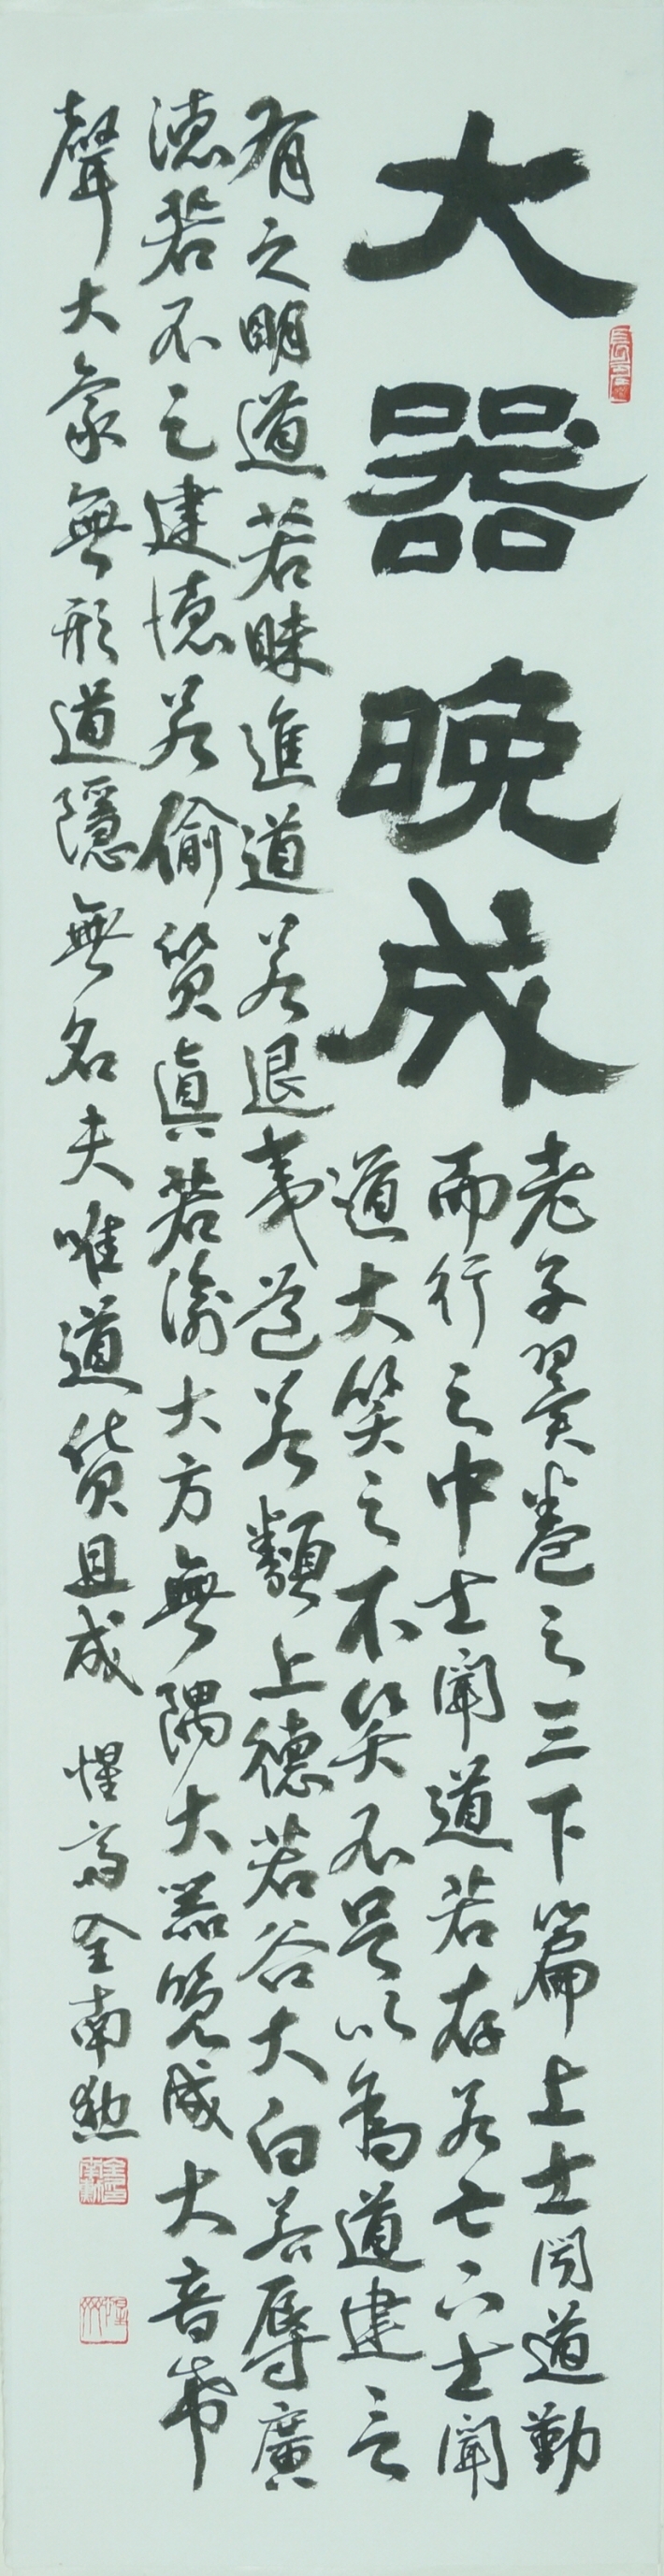 大器晚成
老子翼卷之三下篇上士聞道勤
而行之中士聞道若存若亡下士聞
道大笑之不笑不足以為道建言
有之明道若昧進道若退夷道若類上德若谷大白若辱廣
德若不足建德若偷質眞若渝大方無隅大器晚成大音希
聲大象無形道隱無名夫唯道貸且成 惺 全南勳